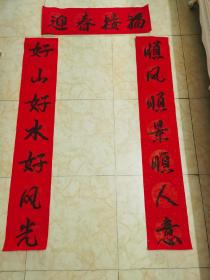 迎春接福
顺风顺景顺人意
好山好水好风光